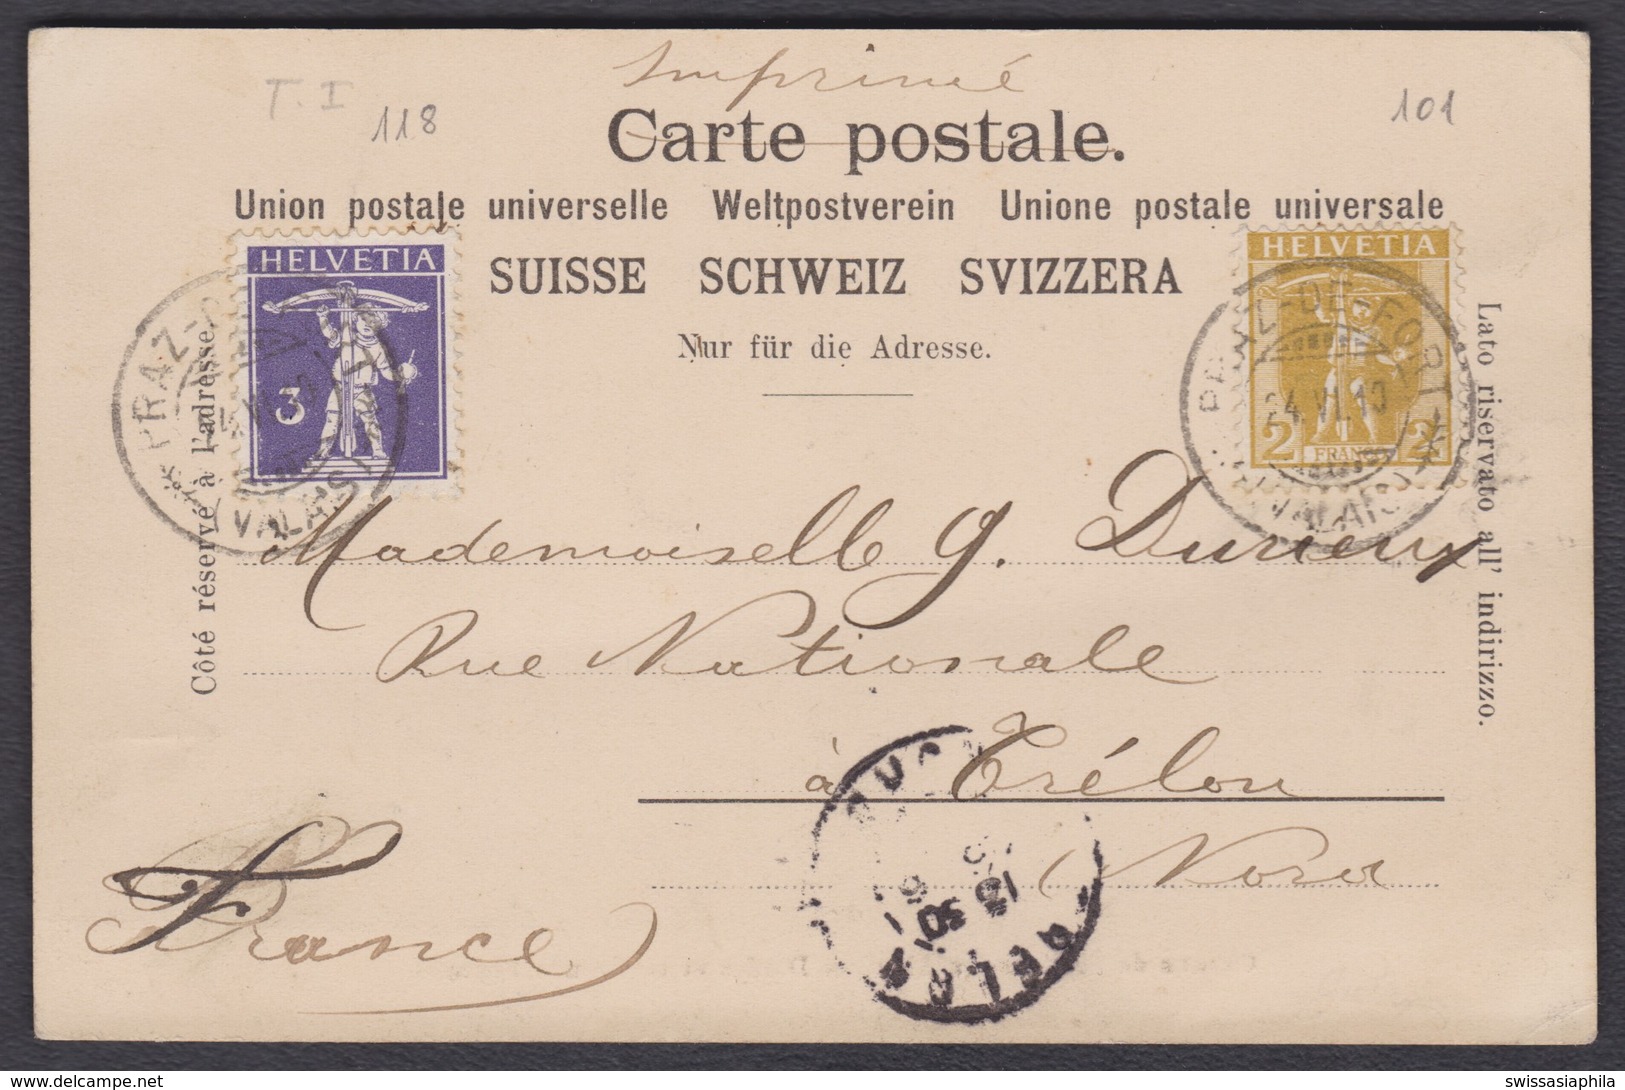 Imprimé
T. I
118
101
Carte postale.
Union postale universelle Weltpostverein Unione postale universale
SUISSE SCHWEIZ SVIZZERA
Nur für die Adresse.
HELVETIA
3
HELVETIA
2 FRANCO 2
PRAZ-
VALAIS
PRAZ-DE-FORT
24.VI.10
(VALAIS)
Côté réservé à l'adresse.
Lato riservato all' indirizzo.
Mademoiselle G. Durieux
Rue Nationale
à Trélon
Nord
France
TRELON
13 30
NORD
swissasiaphila